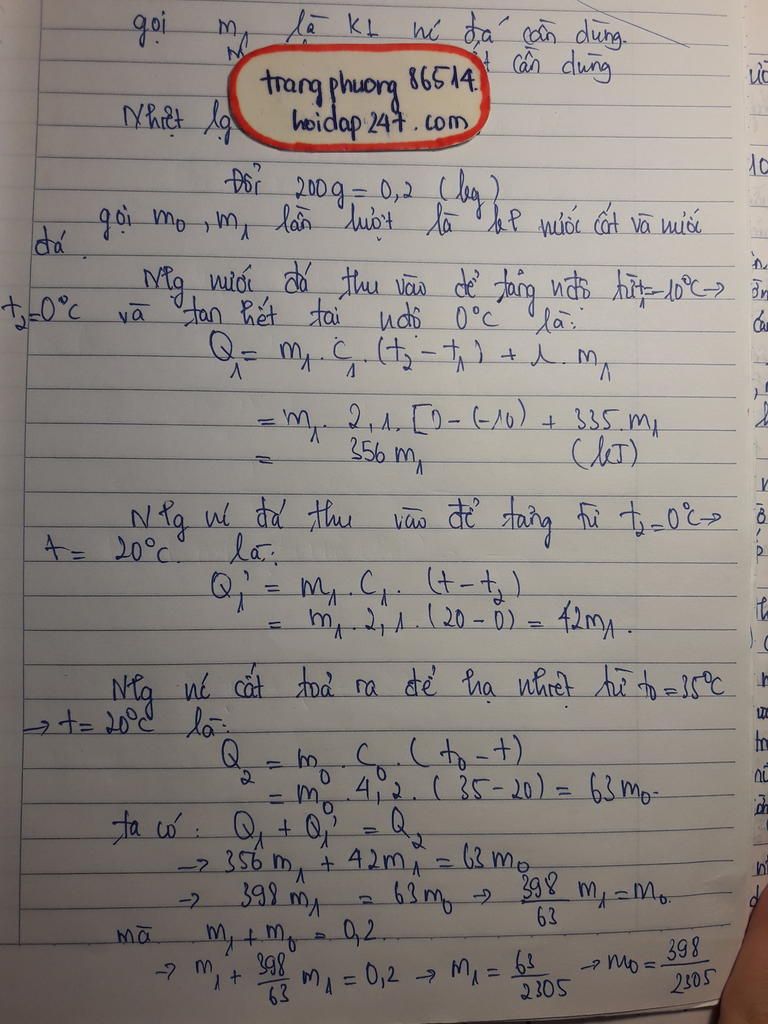 gọi m₁ là KL nc đá cần dùng.
cần dùng
trangphuong 86514.
Nhiệt lg
hoidap247.com
Đổi 200g = 0,2 (kg)
gọi m₀, m₁ lần lượt là kl nước cất và nước
đá.
Nlg nước đá thu vào để tăng nđộ từ t₁=-10°C →
t₂=0°C và tan hết tại nđộ 0°C là:
Q₁ = m₁ . C₁ . (t₂ - t₁) + λ . m₁
= m₁ . 2,1 . [0-(-10) + 335.m₁
= 356 m₁ (kJ)
Nlg nc đá thu vào để tăng từ t₂=0°C →
t = 20°C. là:
Q₁' = m₁ . C₁ . (t - t₂)
= m₁ . 2,1 . (20 - 0) = 42m₁.
Nlg nc cất toả ra để hạ nhiệt từ t₀ = 35°C
→ t = 20°C là:
Q₂ = m₀ . C₀ . (t₀ - t)
= m₀ . 4,2 . (35 - 20) = 63 m₀.
ta có: Q₁ + Q₁' = Q₂
→ 356 m₁ + 42m₁ = 63 m₀
→ 398 m₁ = 63 m₀ → 398/63 m₁ = m₀.
mà m₁ + m₀ = 0,2.
→ m₁ + 398/63 m₁ = 0,2 → m₁ = 63/2305 → m₀ = 398/2305